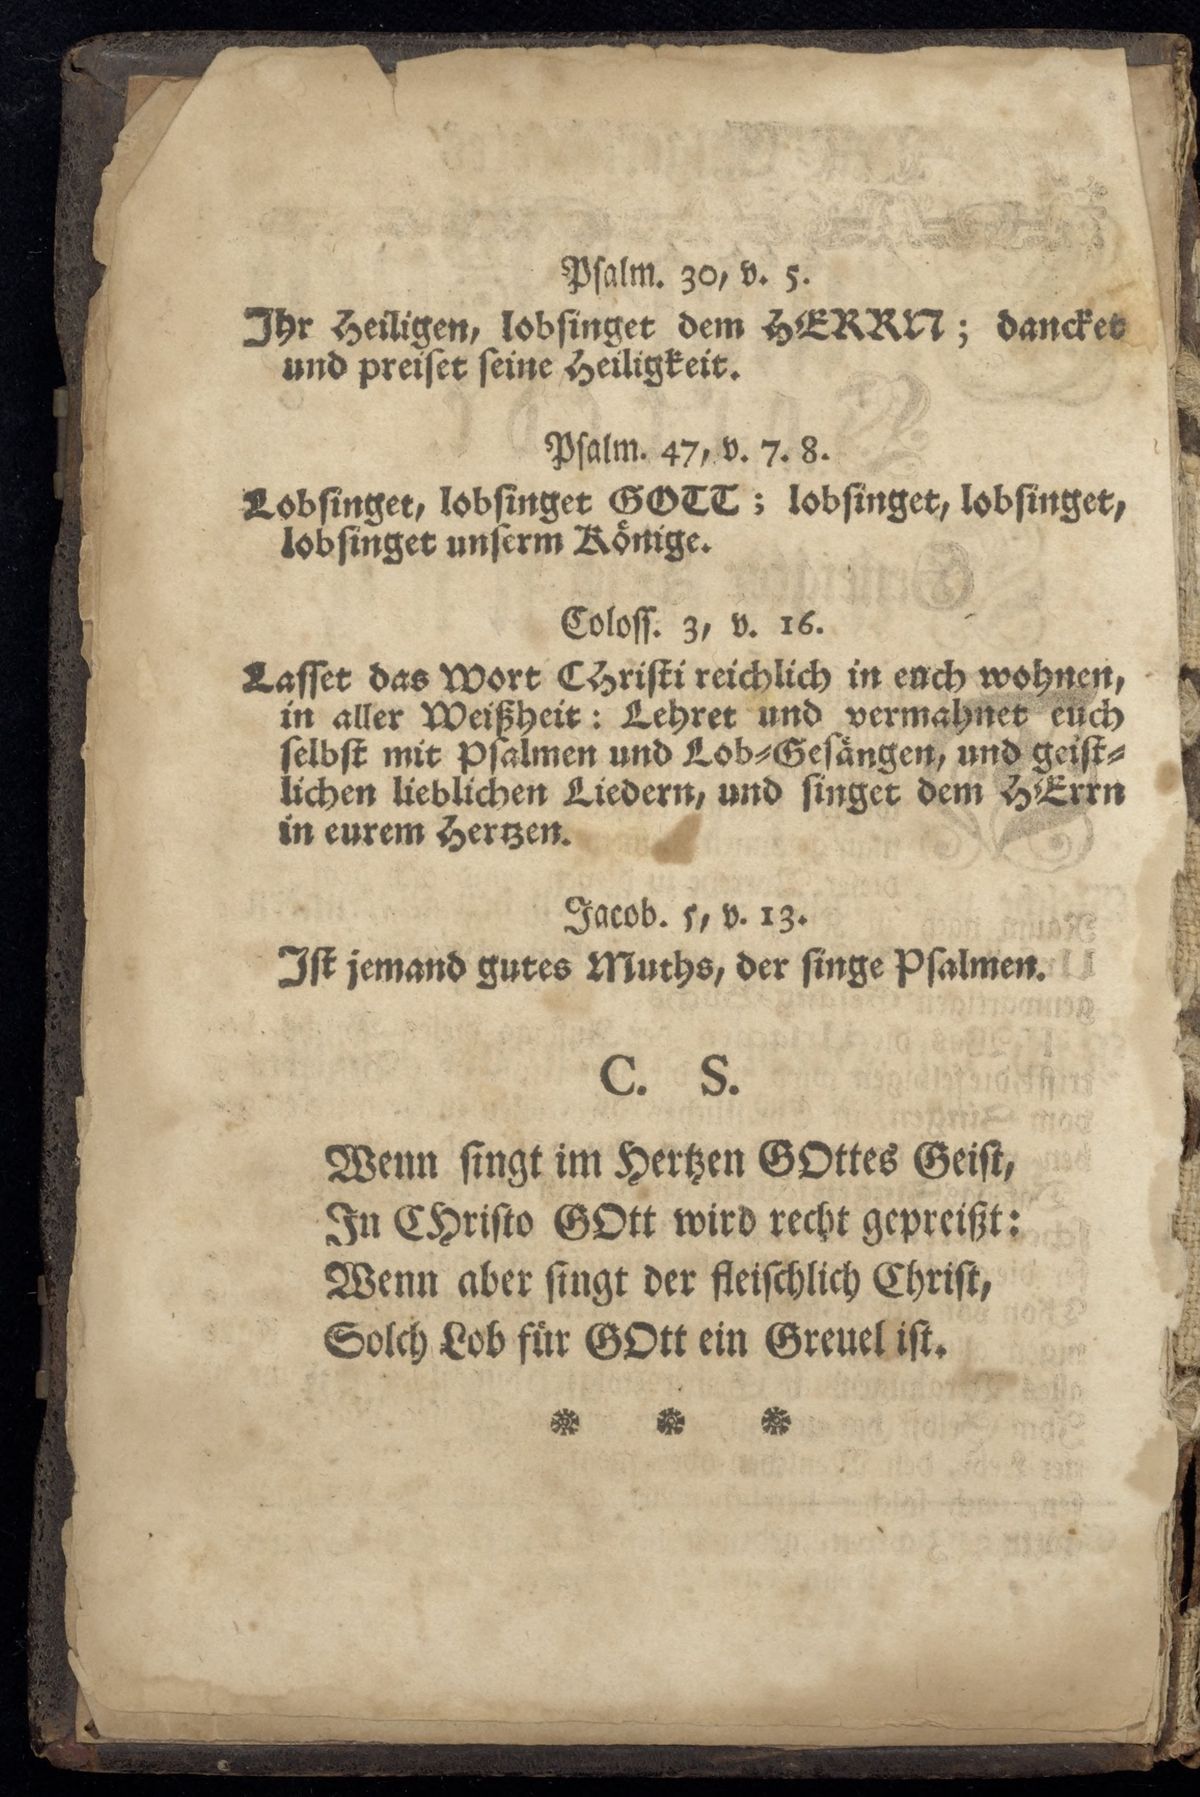 Psalm. 30, v. 5.
Ihr Heiligen, lobsinget dem HERRN; dancket
und preiset seine Heiligkeit.
Psalm. 47, v. 7. 8.
Lobsinget, lobsinget GOTT; lobsinget, lobsinget,
lobsinget unserm Könige.
Coloss. 3, v. 16.
Lasset das Wort CHristi reichlich in euch wohnen,
in aller Weißheit: Lehret und vermahnet euch
selbst mit Psalmen und Lob-Gesängen, und geist-
lichen lieblichen Liedern, und singet dem HErrn
in eurem Hertzen.
Jacob. 5, v. 13.
Ist jemand gutes Muths, der singe Psalmen.
C. S.
Wenn singt im Hertzen GOttes Geist,
In CHristo GOtt wird recht gepreißt:
Wenn aber singt der fleischlich Christ,
Solch Lob für GOtt ein Greuel ist.